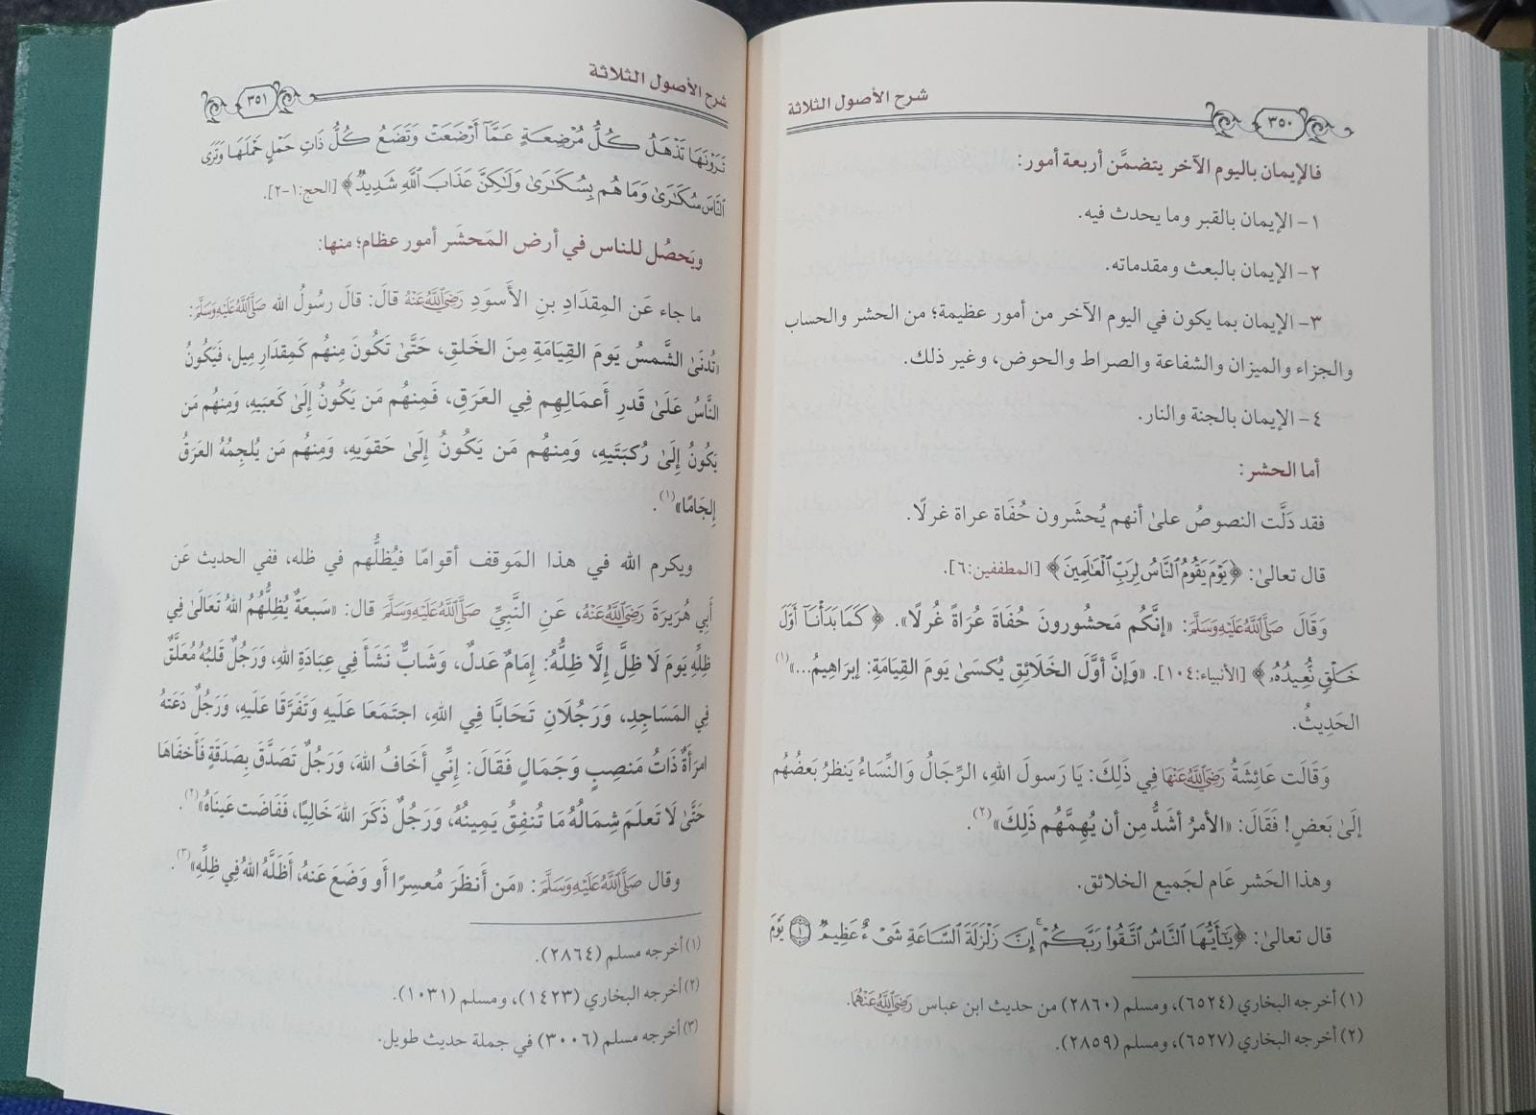 شرح الأصول الثلاثة
٣٥٠
فالإيمان باليوم الآخر يتضمَّن أربعة أمور:
١- الإيمان بالقبر وما يحدث فيه.
٢- الإيمان بالبعث ومقدماته.
٣- الإيمان بما يكون في اليوم الآخر من أمور عظيمة؛ من الحشر والحساب
والجزاء والميزان والشفاعة والصراط والحوض، وغير ذلك.
٤- الإيمان بالجنة والنار.
أما الحشر:
فقد دَلَّت النصوصُ علىٰ أنهم يُحشَرون حُفَاة عراة غرلًا.
قال تعالىٰ: ﴿يَوْمَ يَقُومُ ٱلنَّاسُ لِرَبِّ ٱلْعَٰلَمِينَ﴾ [المطففين:٦].
وَقَالَ صَلَّى اللَّهُ عَلَيْهِ وَسَلَّمَ: «إنَّكُم مَحشُورونَ حُفَاةً عُرَاةً غُرلًا». ﴿كَمَا بَدَأْنَآ أَوَّلَ
خَلْقٍ نُّعِيدُهُۥ﴾ [الأنبياء:١٠٤]. «وَإنَّ أوَّلَ الخَلَائِقِ يُكسَىٰ يَومَ القِيَامَةِ: إبرَاهِيمُ...»(١)
الحَدِيثُ.
وَقَالَت عَائِشَةُ رَضِيَ اللَّهُ عَنْهَا فِي ذَلِكَ: يَا رَسولَ اللهِ، الرِّجَالُ وَالنِّسَاءُ يَنظرُ بَعضُهُم
إلَىٰ بَعضٍ! فَقَالَ: «الأمرُ أشَدُّ مِن أن يُهِمَّهُم ذَلِكَ»(٢).
وهذا الحَشر عَام لجَميع الخلائق.
قال تعالىٰ: ﴿يَٰٓأَيُّهَا ٱلنَّاسُ ٱتَّقُوا۟ رَبَّكُمْ ۚ إِنَّ زَلْزَلَةَ ٱلسَّاعَةِ شَىْءٌ عَظِيمٌ ١ يَوْمَ
(١) أخرجه البخاري (٦٥٢٤)، ومسلم (٢٨٦٠) من حديث ابن عباس رَضِيَ اللَّهُ عَنْهُمَا.
(٢) أخرجه البخاري (٦٥٢٧)، ومسلم (٢٨٥٩).
شرح الأصول الثلاثة
٣٥١
تَرَوْنَهَا تَذْهَلُ كُلُّ مُرْضِعَةٍ عَمَّآ أَرْضَعَتْ وَتَضَعُ كُلُّ ذَاتِ حَمْلٍ حَمْلَهَا وَتَرَى
ٱلنَّاسَ سُكَٰرَىٰ وَمَا هُم بِسُكَٰرَىٰ وَلَٰكِنَّ عَذَابَ ٱللَّهِ شَدِيدٌ﴾ [الحج:١-٢].
ويَحصُل للناس في أرض المَحشَر أمور عظام؛ منها:
ما جاء عَن المِقدَادِ بنِ الأَسوَدِ رَضِيَ اللَّهُ عَنْهُ قالَ: قالَ رسُولُ الله صَلَّى اللَّهُ عَلَيْهِ وَسَلَّمَ:
«تُدنَىٰ الشَّمسُ يَومَ القِيَامَةِ مِنَ الخَلقِ، حَتَّىٰ تَكُونَ مِنهُم كَمِقدَارِ مِيل، فَيَكُونُ
النَّاسُ عَلَىٰ قَدرِ أَعمَالِهِم فِي العَرَقِ، فَمِنهُم مَن يَكُونُ إلَىٰ كَعبَيهِ، وَمِنهُم مَن
يَكُونُ إلَىٰ رُكبَتَيهِ، وَمِنهُم مَن يَكُونُ إلَىٰ حَقوَيهِ، وَمِنهُم مَن يُلجِمُهُ العَرَقُ
إلجَامًا»(١).
ويكرم الله في هذا المَوقف أقوامًا فيُظلُّهم في ظله، ففي الحديث عَن
أَبِي هُرَيرَةَ رَضِيَ اللَّهُ عَنْهُ، عَنِ النَّبِيِّ صَلَّى اللَّهُ عَلَيْهِ وَسَلَّمَ قال: «سَبعَةٌ يُظِلُّهُمُ اللهُ تَعَالَىٰ فِي
ظِلِّهِ يَومَ لَا ظِلَّ إلَّا ظِلُّهُ: إمَامٌ عَدلٌ، وَشَابٌّ نَشَأَ فِي عِبَادَةِ اللهِ، وَرَجُلٌ قَلبُهُ مُعَلَّقٌ
فِي المَسَاجِدِ، وَرَجُلَانِ تَحَابَّا فِي اللهِ، اجتَمَعَا عَلَيهِ وَتَفَرَّقَا عَلَيهِ، وَرَجُلٌ دَعَتهُ
امرَأَةٌ ذَاتُ مَنصِبٍ وَجَمَالٍ فَقَالَ: إنِّي أَخَافُ اللهَ، وَرَجُلٌ تَصَدَّقَ بِصَدَقَةٍ فَأَخفَاهَا
حَتَّىٰ لَا تَعلَمَ شِمَالُهُ مَا تُنفِقُ يَمِينُهُ، وَرَجُلٌ ذَكَرَ اللهَ خَالِيًا، فَفَاضَت عَينَاهُ»(٢).
وقال صَلَّى اللَّهُ عَلَيْهِ وَسَلَّمَ: «مَن أَنظَرَ مُعسِرًا أَو وَضَعَ عَنهُ، أَظَلَّهُ اللهُ فِي ظِلِّهِ»(٣).
(١) أخرجه مسلم (٢٨٦٤).
(٢) أخرجه البخاري (١٤٢٣)، ومسلم (١٠٣١).
(٣) أخرجه مسلم (٣٠٠٦) في جملة حديث طويل.